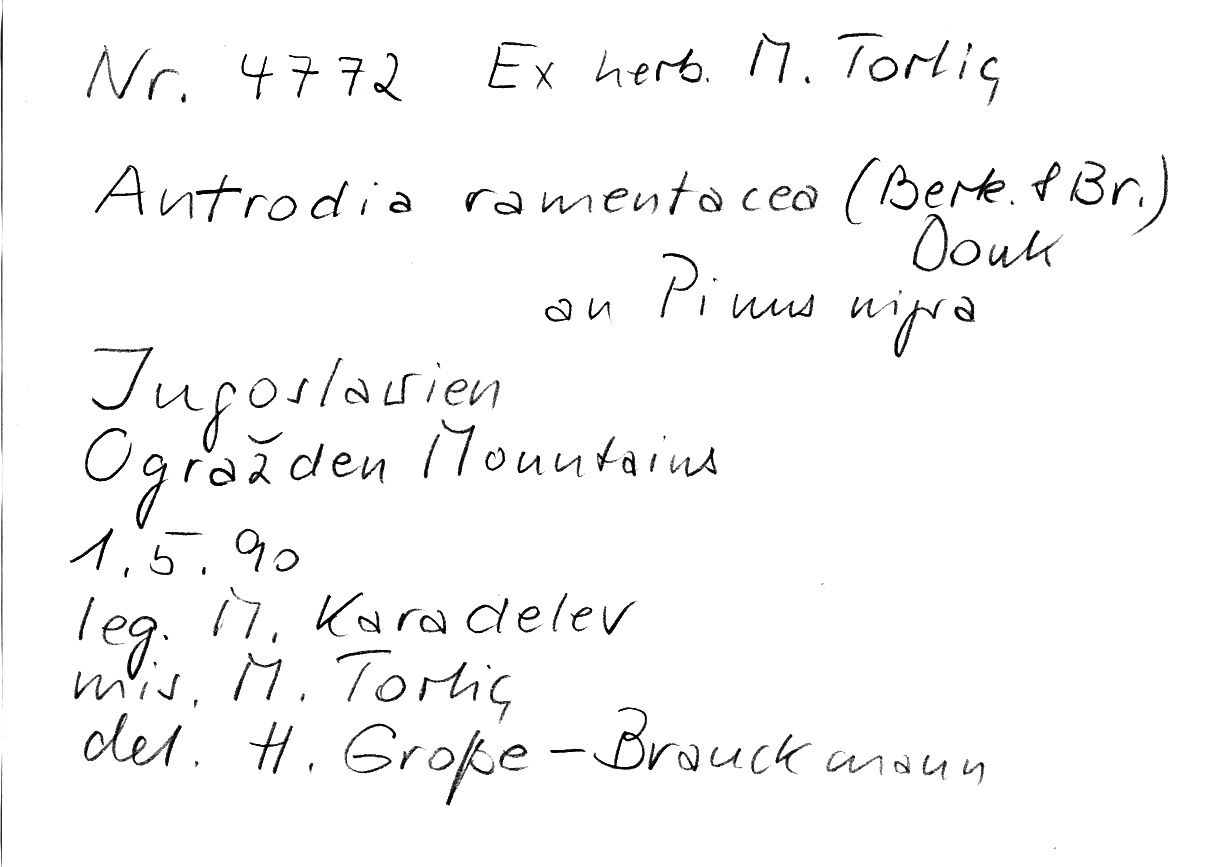 Nr. 4772 Ex herb. M. Tortiç
Antrodia ramentacea (Berk. & Br.)
Donk
an Pinus nigra
Jugoslawien
Ogražden Mountains
1.5.90
leg. M. Karadelev
mis. M. Tortiç
det. H. Große-Brauckmann